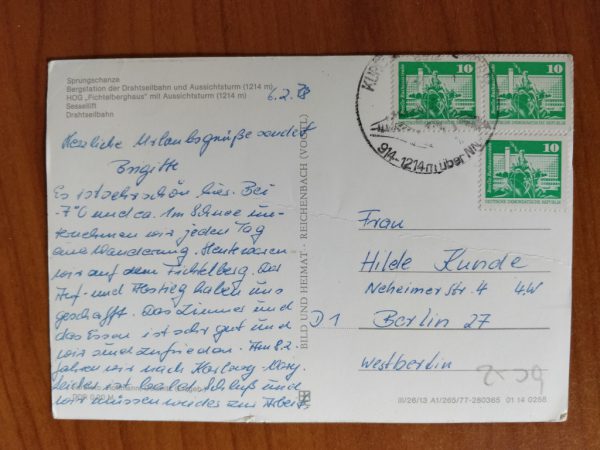 Sprungschanze
Bergstation der Drahtseilbahn und Aussichtsturm (1214 m)
HOG „Fichtelberghaus" mit Aussichtsturm (1214 m)
Sessellift
Drahtseilbahn
6.2.78
Herzliche Urlaubsgrüße sendet
Brigitte
Es ist sehr schön hier. Bei
-7°C und ca. 1m Schnee un-
ternehmen wir jeden Tag
eine Wanderung. Heute waren
wir auf dem Fichtelberg. Der
Auf- und Abstieg haben uns
geschafft. Das Zimmer und
das Essen ist sehr gut und
wir sind zufrieden. Am 8.2.
fahren wir nach
leider ist bald Schluß und
wir müssen wieder zur Arbeit
DDR
BILD UND HEIMAT · REICHENBACH (VOGTL)
914-1214 m über NN
10
10
10
DEUTSCHE DEMOKRATISCHE REPUBLIK
Frau
Hilde Kunde
Neheimerstr. 4 4W
D1 Berlin 27
Westberlin
III/26/13 A1/265/77-280385 01 14 0256